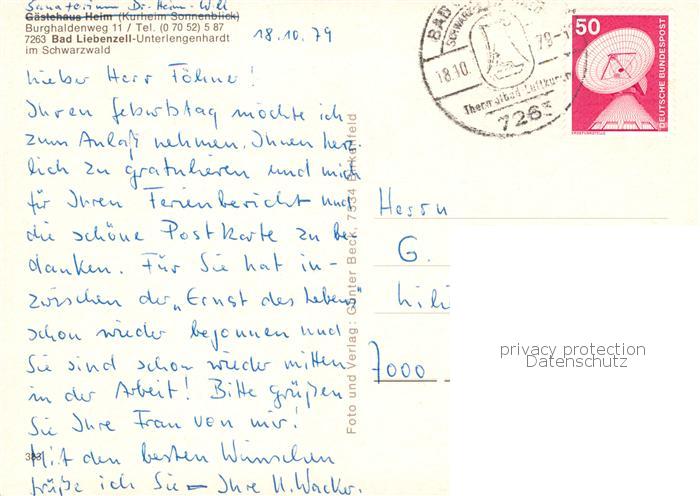 Sanatorium Dr. Heim-Will
Gästehaus Heim (Kurheim Sonnenblick)
Burghaldenweg 11 / Tel. (0 70 52) 5 87
7263 Bad Liebenzell-Unterlengenhardt
im Schwarzwald
18.10.79
Lieber Herr Föhner!
Ihren Geburtstag möchte ich
zum Anlaß nehmen, Ihnen herz-
lich zu gratulieren und mich
für Ihren Ferienbericht und
die schöne Postkarte zu be-
danken. Für Sie hat in-
zwischen der „Ernst des Lebens"
schon wieder begonnen und
Sie sind schon wieder mitten
in der Arbeit! Bitte grüßen
Sie Ihre Frau von mir!
Mit den besten Wünschen
grüße ich Sie — Ihre H. Wacker.
383
Foto und Verlag: Günter Beck, 7534 Birkenfeld
BAD
SCHWARZ
18.10.
79-1
Thermalbad Luftkuror
7263
50
DEUTSCHE BUNDESPOST
ERDFUNKSTELLE
Herrn
G.
Lili
7000
privacy protection
Datenschutz